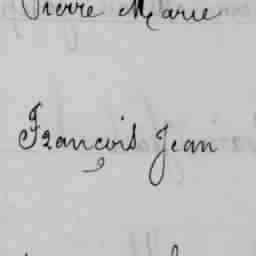 Pierre Marie
François Jean